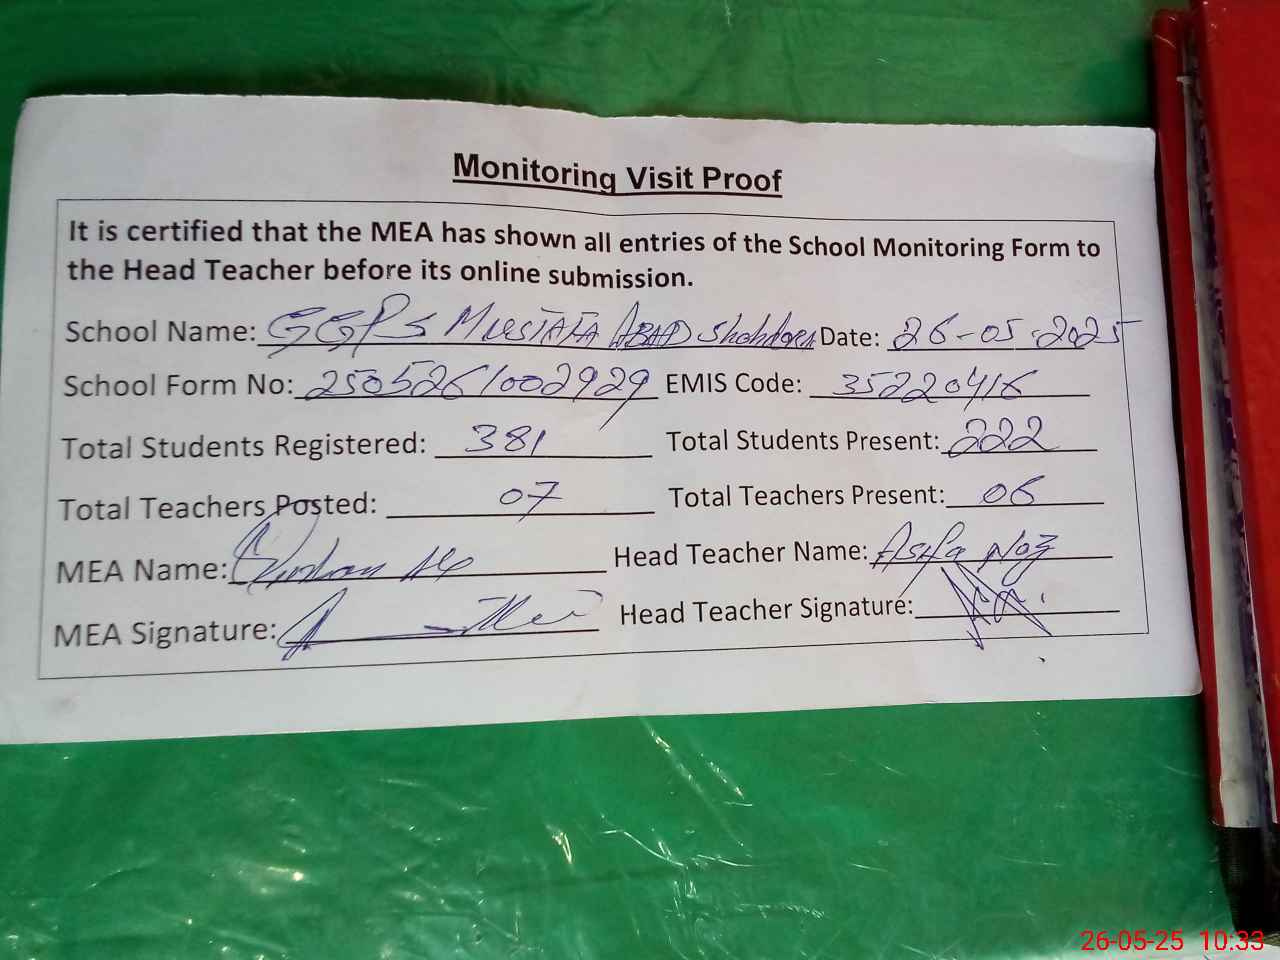 Monitoring Visit Proof
It is certified that the MEA has shown all entries of the School Monitoring Form to
the Head Teacher before its online submission.
School Name: GGPS MUSTAFA ABAD Shahdara Date: 26-05-2025
School Form No: 2505261002929 EMIS Code: 35220416
Total Students Registered: 381 Total Students Present: 222
Total Teachers Posted: 07 Total Teachers Present: 06
MEA Name: Head Teacher Name: Asifa Naz
MEA Signature: Head Teacher Signature:
26-05-25 10:33